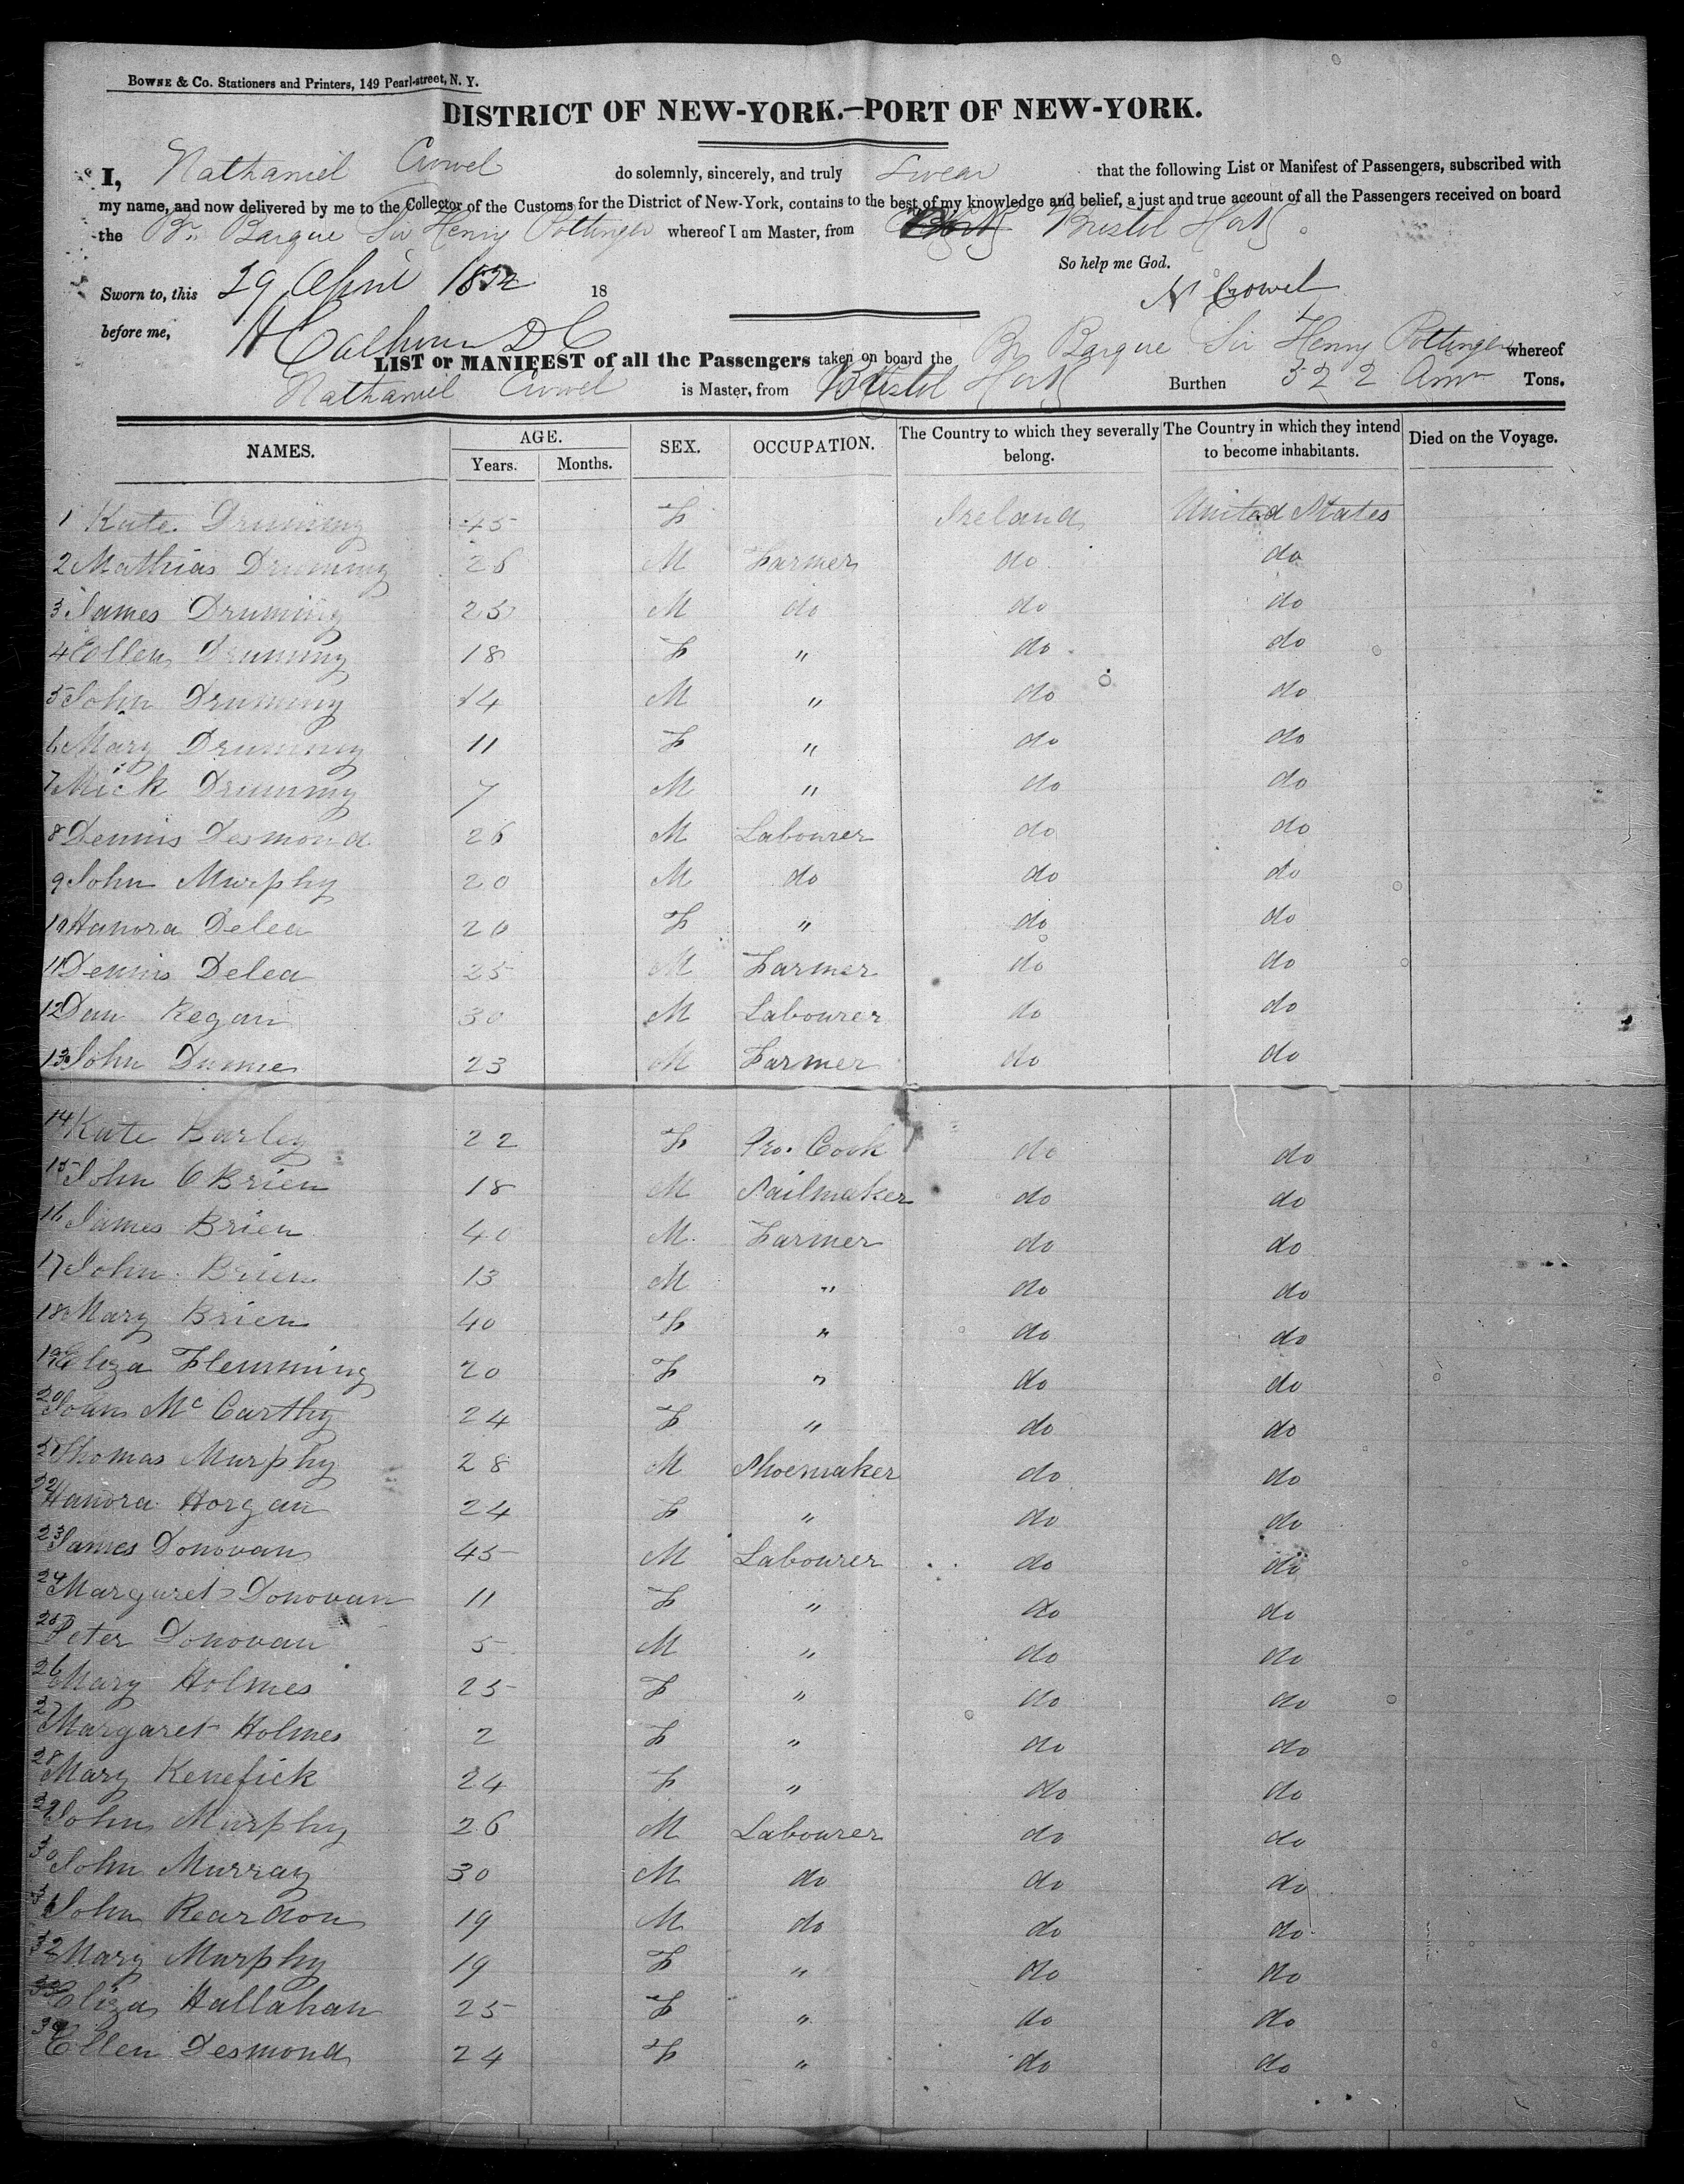 BOWNE & Co. Stationers and Printers, 149 Pearl-street, N. Y.
DISTRICT OF NEW-YORK.—PORT OF NEW-YORK.
I, Nathaniel Crowel do solemnly, sincerely, and truly Swear that the following List or Manifest of Passengers, subscribed with
my name, and now delivered by me to the Collector of the Customs for the District of New-York, contains to the best of my knowledge and belief, a just and true account of all the Passengers received on board
the Br. Barque Sir Henry Pottinger whereof I am Master, from Bristol
So help me God.
Sworn to, this 29 April 1852 18 N Crowel
before me, H Calhoun D C
LIST or MANIFEST of all the Passengers taken on board the Br Barque Sir Henry Pottinger whereof
Nathaniel Crowel is Master, from Bristol Burthen 522 Tons.
NAMES. AGE. SEX. OCCUPATION. The Country to which they severally belong. The Country in which they intend to become inhabitants. Died on the Voyage.
Years. Months.
1 Kate Drummy 45 F Ireland United States
2 Mathias Drummy 26 M Farmer do do
3 James Drummy 25 M do do do
4 Ellen Drummy 18 F " do do
5 John Drummy 14 M " do do
6 Mary Drummy 11 F " do do
7 Mick Drummy 7 M " do do
8 Dennis Desmond 26 M Labourer do do
9 John Murphy 20 M do do do
10 Hanora Delea 20 F " do do
11 Dennis Delea 25 M Farmer do do
12 Dan Regan 30 M Labourer do do
13 John 23 M Farmer do do
14 Kate Barley 22 F Pro. Cook do do
15 John O Brien 18 M Nailmaker do do
16 James Brien 40 M Farmer do do
17 John Brien 13 M " do do
18 Mary Brien 40 F " do do
19 Eliza Flemming 20 F " do do
20 Joan Mc Carthy 24 F " do do
21 Thomas Murphy 28 M Shoemaker do do
22 Hanora Horgan 24 F " do do
23 James Donovan 45 M Labourer do do
24 Margaret Donovan 11 F " do do
25 Peter Donovan 5 M " do do
26 Mary Holmes 25 F " do do
27 Margaret Holmes 2 F " do do
28 Mary Kenefick 24 F " do do
29 John Murphy 26 M Labourer do do
30 John Murray 30 M do do do
31 John Reardon 19 M do do do
32 Mary Murphy 19 F " do do
33 Eliza Hallahan 25 F " do do
34 Ellen Desmond 24 F " do do